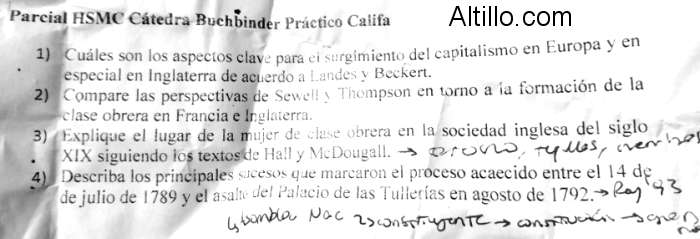 Parcial HSMC Cátedra Buchbinder Práctico Califa
Altillo.com
1) Cuáles son los aspectos clave para el surgimiento del capitalismo en Europa y en
especial en Inglaterra de acuerdo a Landes y Beckert.
2) Compare las perspectivas de Sewell y Thompson en torno a la formación de la
clase obrera en Francia e Inglaterra.
3) Explique el lugar de la mujer de clase obrera en la sociedad inglesa del siglo
XIX siguiendo los textos de Hall y McDougall. →
4) Describa los principales sucesos que marcaron el proceso acaecido entre el 14 de
de julio de 1789 y el asalte del Palacio de las Tullerías en agosto de 1792. → 93
Nac constituyente → constitución →